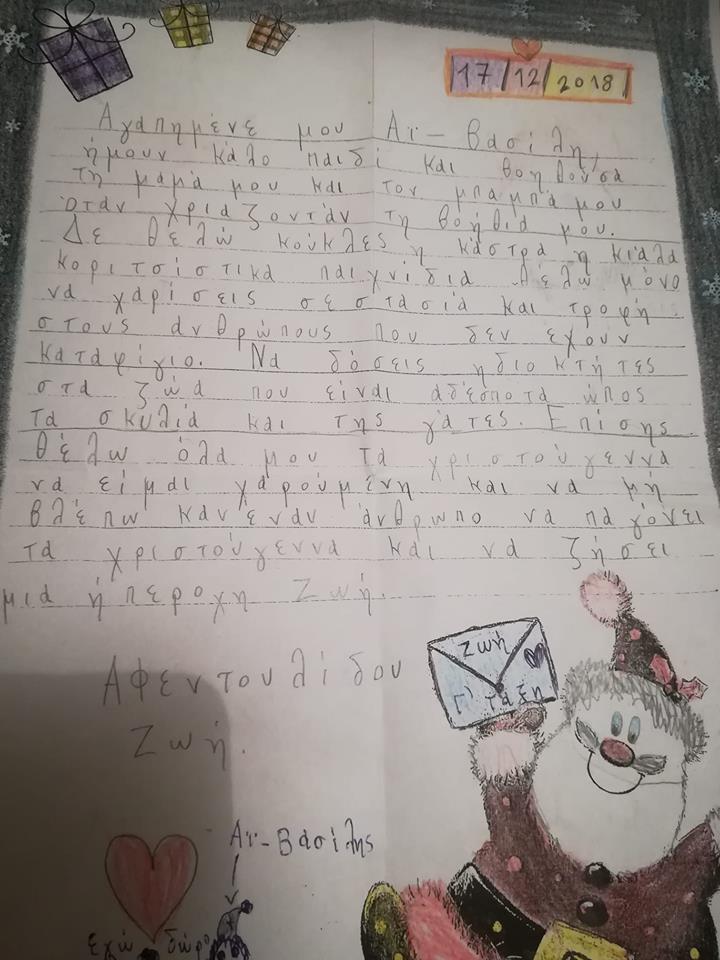 17/12/2018
Αγαπημένε μου Αϊ-Βασίλη,
ήμουν κάλο παιδί και βοηθούσα
τη μαμά μου και τον μπαμπά μου
όταν χριαζόνταν τη βοήθιά μου.
Δε θέλω κούκλες ή κάστρα ή κιάλα
κοριτσίστικα παιχνίδια θέλω μόνο
να χαρίσεις σε στασιά και τροφή
στους ανθρώπους που δεν έχουν
καταφίγιο. Να δόσεις ηδιοκτήτες
στα ζώα που είναι αδέσποτα ώπος
τα σκυλιά και της γάτες. Επίσης
θέλω όλα μου τα χριστούγεννα
να είμαι χαρούμενη και να μή
βλέπω κανέναν άνθρωπο να παγόνει
τα χριστούγεννα και να ζήσει
μιά ήπεροχη ζωή.
Αφεντουλίδου
Ζωή.
Ζωή
Γ' τάξη
Αϊ-Βασίλης
εγώ δώρο